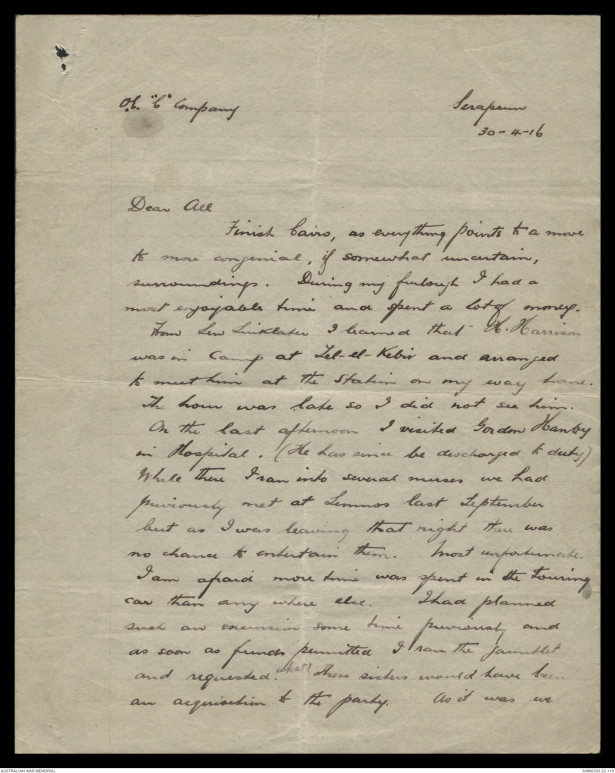 O.C. "C" Company
Serapeum
30-4-16
Dear All
Finish Cairo, as everything points to a move
to more congenial, if somewhat uncertain,
surroundings. During my furlough I had a
most enjoyable time and spent a lot of money.
From Len Linklater I learned that K. Harrison
was in Camp at Tel-el-Kebir and arranged
to meet him at the Station on my way home.
The hour was late so I did not see him.
On the last afternoon I visited Gordon Hanby
in Hospital. (He has since be discharged to duty)
While there I ran into several nurses we had
previously met at Lemnos last September
but as I was leaving that night there was
no chance to entertain them. Most unfortunate.
I am afraid more time was spent in the touring
car than any where else. I had planned
such an excursion some time previously and
as soon as funds permitted I ran the gauntlet
and requested. what? Those sisters would have been
an acquisition to the party. As it was we
AUSTRALIAN WAR MEMORIAL